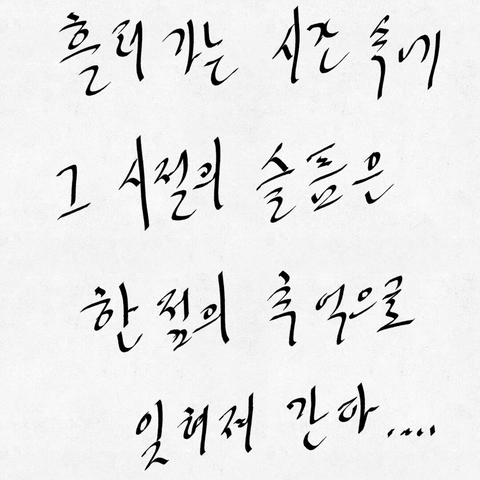 흘러 가는 시간 속에
그 시절의 슬픔은
한 점의 추억으로
잊혀져 간다....